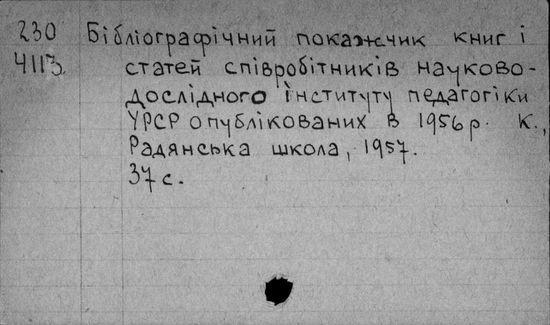 230 Бібліографічний покажчик книг і
4113 статей співробітників науково-
дослідного інституту педагогіки
УРСР опублікованих в 1956 р. К.,
Радянська школа, 1957.
37 с.